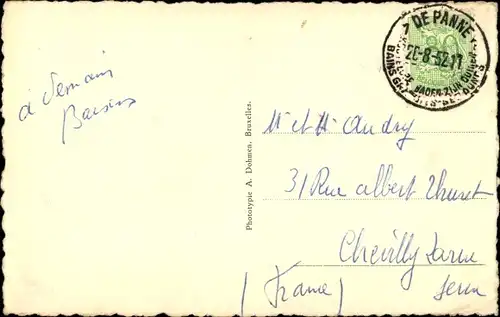 à demain
Baisers
Phototypie A. Dohmen, Bruxelles.
DE PANNE
26-8-52 17
BADEN-ZIJN DUINEN
BAINS SES DUNES
M et Mme Audry
31 Rue Albert Thuret
Chevilly Larue
Seine
(France)